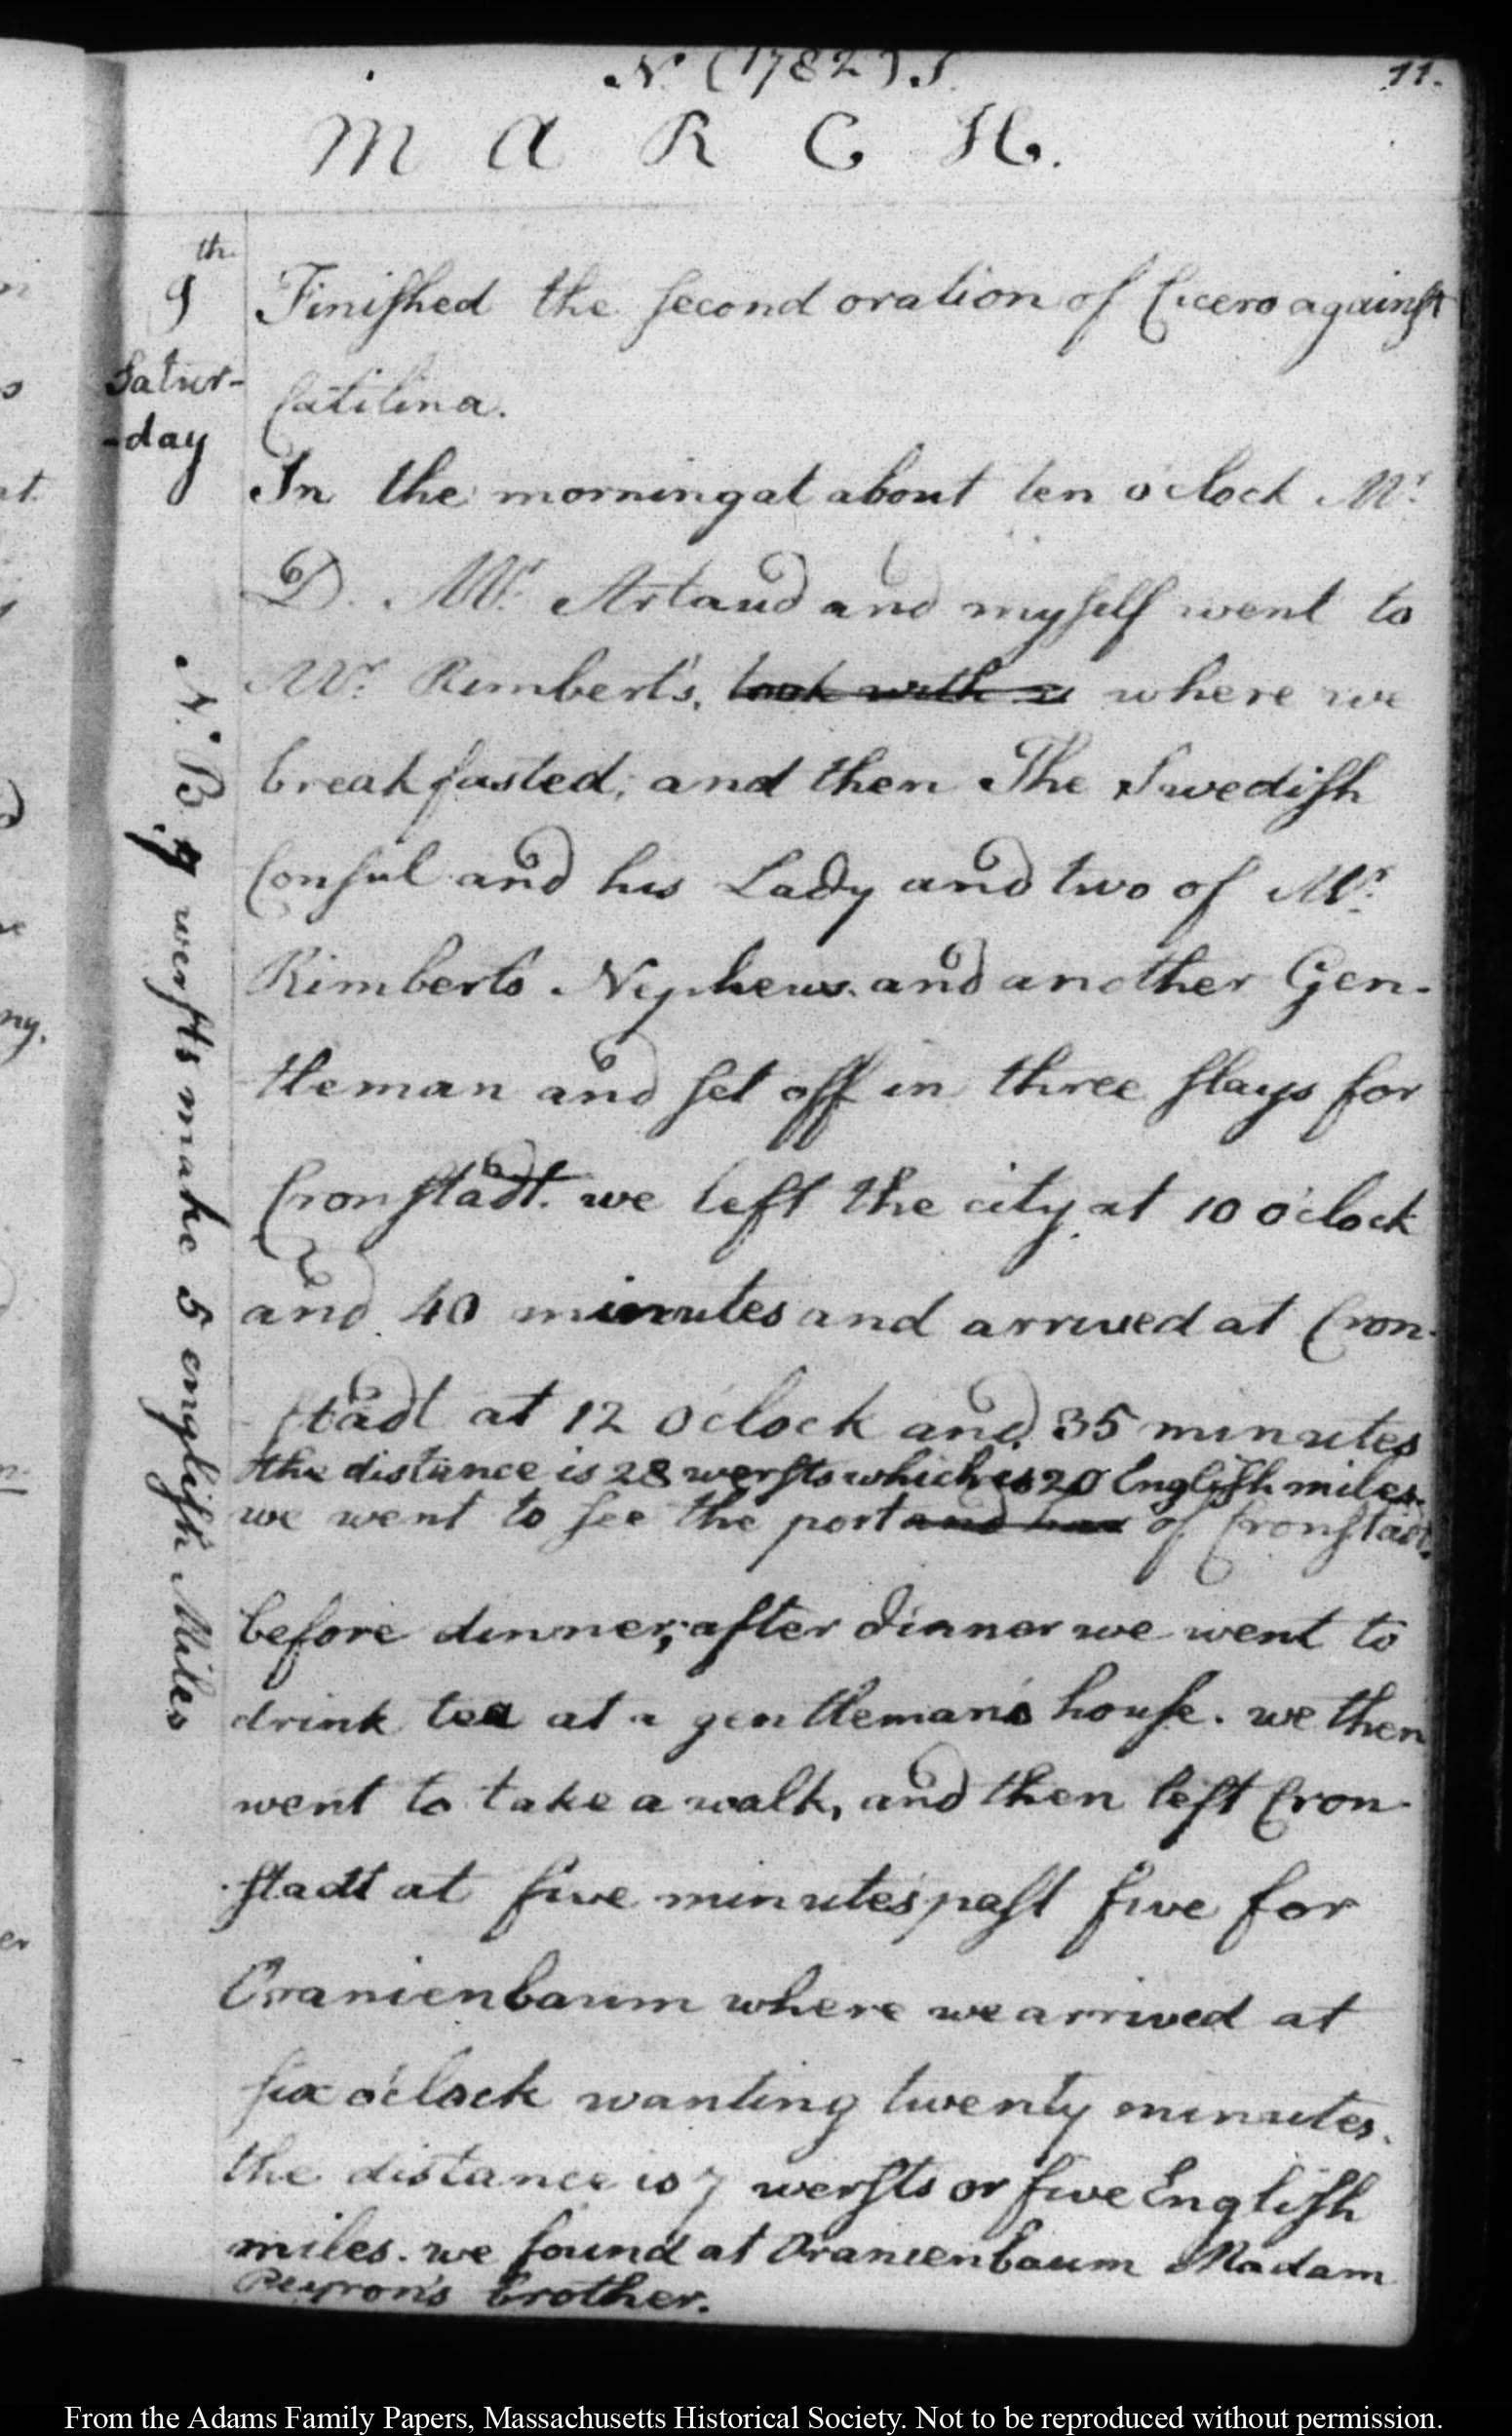 N. (1782) S.
11.
M A R C H.
9th
Satur-
-day
Finiſhed the ſecond oration of Cicero againſt
Catilina.
In the morning at about ten o'clock Mr.
D. Mr. Artaud and myſelf went to
Mr. Rimberts, took with us where we
breakfasted; and then The Swediſh
Conſul and his Lady and two of Mr.
Rimberts Nephews and another Gen-
tleman and ſet off in three ſlays for
Cronſtadt. we left the city at 10 o'clock
and 40 minutes and arrived at Cron-
-ſtadt at 12 o'clock and 35 minutes
the distance is 28 werſts which is 20 Engliſh miles.
we went to ſee the port and har of Cronſtadt.
before dinner; after dinner we went to
drink tea at a gentleman's houſe. we then
went to take a walk, and then left Cron-
-ſtadt at five minutes paſt five for
Oranienbaum where we arrived at
ſix o'clock wanting twenty minutes.
the distance is 7 werſts or five Engliſh
miles. we found at Oranienbaum Madam
Peyron's brother.
N.B. 7 werſts make 5 engliſh Miles
From the Adams Family Papers, Massachusetts Historical Society. Not to be reproduced without permission.